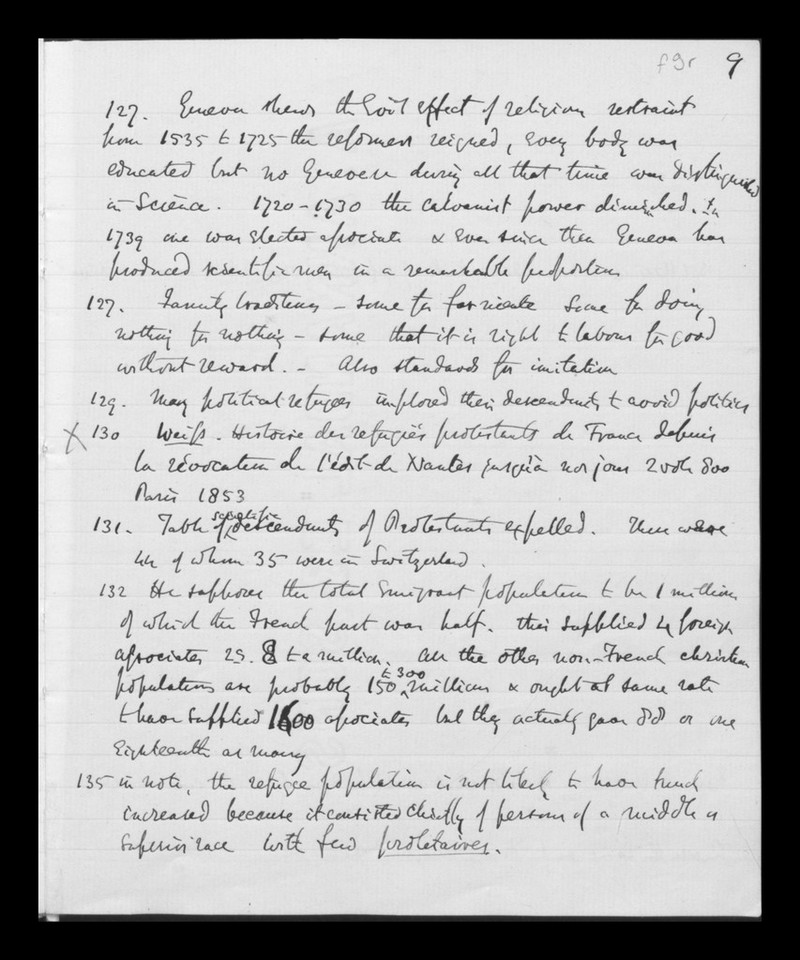 f9r 9
127. Geneva shews the Evil effect of religious restraint
from 1535 to 1725 the reformers reigned, every body was
educated but no Genevese during all that time was distinguished
in Science. 1720-1730 the calvanist power diminished. In
1739 one was elected associate & ever since then Geneva has
produced scientific men in a remarkable proportion
127. Family traditions – some for far niente some for doing
nothing for nothing – some that it is right to labour for good
without reward. – Also standards for imitation
129. Many political refugees implored their descendents to avoid politics
X 130 Weiss. Histoire des refugiés protestants de France depuis
la révocation de l'édit de Nantes jusqu'à nos jours 2 vols 8vo
Paris 1853
131. Table of scientific descendents of Protestants expelled. There were
44 of whom 35 were in Switzerland.
132 He supposes the total Emigrant population to be 1 million
of which the French part was half. this supplied 4 foreign
associates = 8 to a million. All the other non-French christian
populations are probably 150 to 300 millions & ought at same rate
to have supplied 1600 associates but they actually gave or one
Eighteenth as many
135 in note, the refugee population is not likely to have much
increased because it consisted chiefly of persons of a middle or
superior race with few proletaires.